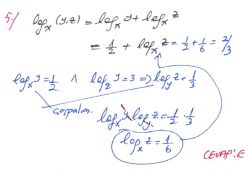 5/ log_x (y.z) = log_x y + log_x z
= 1/2 + log_x z = 1/2 + 1/6 = 2/3
log_x y = 1/2 ∧ log_z y = 3 ⇒ log_y z = 1/3
çarpalım. log_x y · log_y z = 1/2 · 1/3
log_x z = 1/6
CEVAP: E